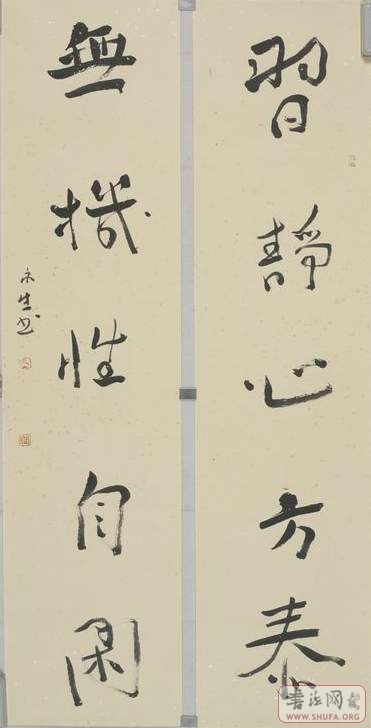 習靜心方泰
無機性自閑
書法网
WWW.SHUFA.ORG